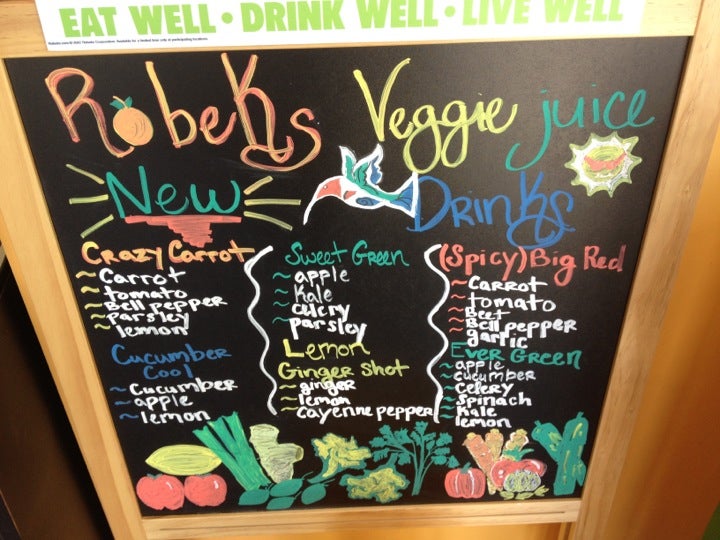 EAT WELL • DRINK WELL • LIVE WELL
Robeks Veggie juice
New Drinks
Crazy Carrot
~Carrot
~tomato
~Bell pepper
~Parsley
~lemon
Cucumber
Cool
~Cucumber
~apple
~lemon
Sweet Green
~apple
~Kale
~culcry
~parsley
Lemon
Ginger Shot
~ginger
~lemon
~cayenne pepper
(Spicy) Big Red
~Carrot
~tomato
~Beet
~Bell pepper
garlic
Ever Green
~apple
~cucumber
~celery
~Spinach
~Kale
lemon